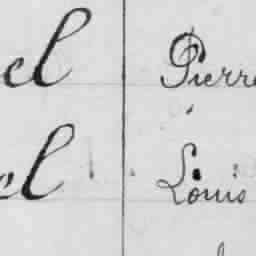 el Pierre
el Louis